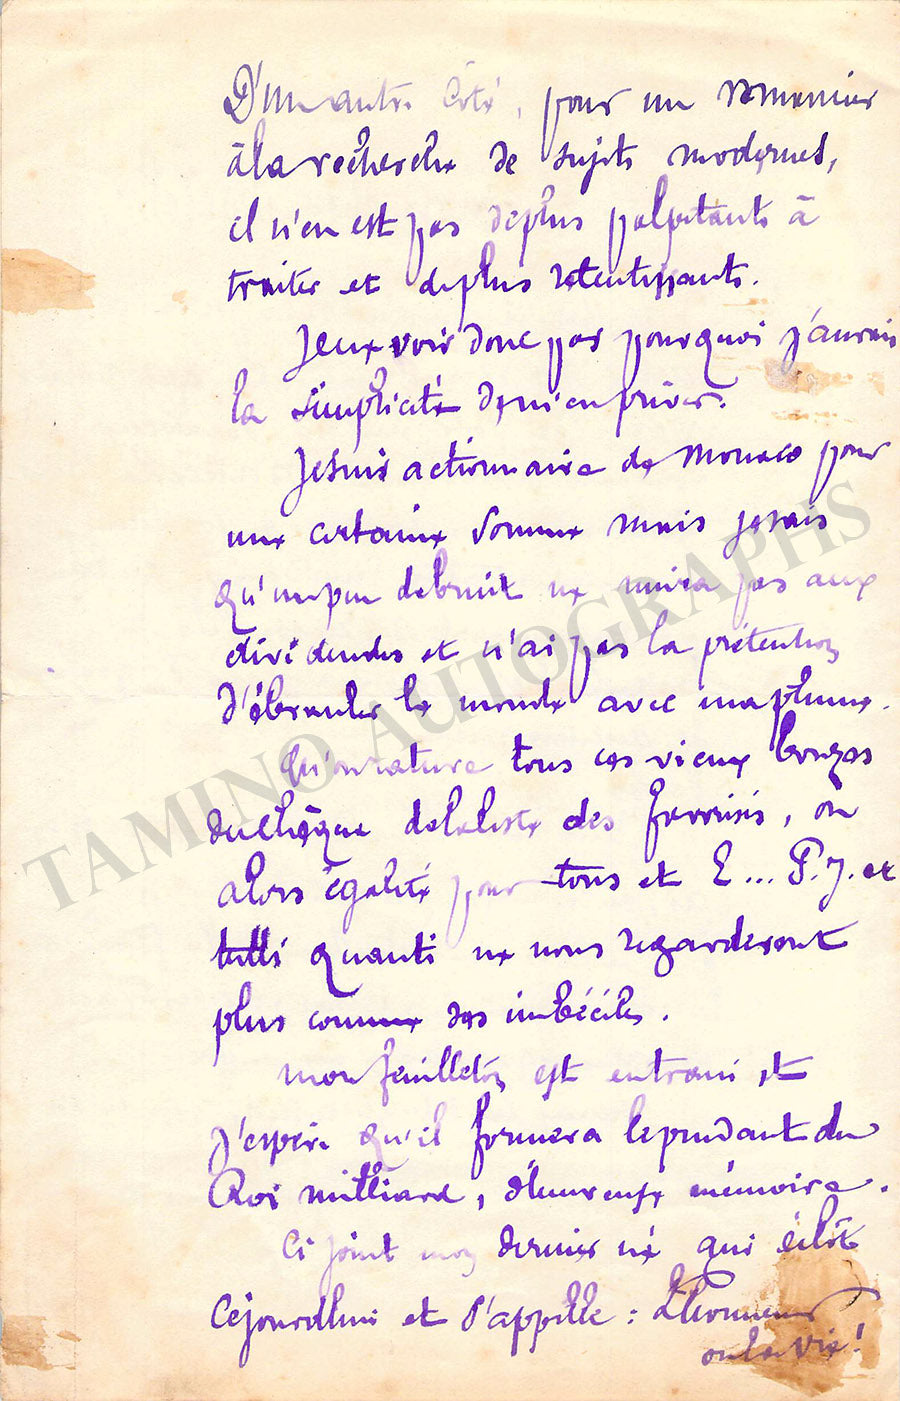 D'un autre côté, pour un romancier
à la recherche de sujets modernes,
il n'en est pas de plus palpitants à
traiter et de plus retentissants.
Je ne vois donc pas pourquoi j'aurais
la simplicité de m'en priver.
Je suis actionnaire de Monaco pour
une certaine somme mais je sais
qu'un peu de bruit ne nuira pas aux
dividendes et n'ai pas la prétention
d'ébranler le monde avec ma plume.
Qu'on rature tous ces vieux bonzes
du chèque de la liste des favorisés, ou
alors égalité pour tous et E... P. J. et
tutti quanti ne nous regarderont
plus comme des imbéciles.
Mon feuilleton est en train et
j'espère qu'il formera le pendant du
Roi milliard, d'heureuse mémoire.
Ci joint mon dernier né qui éclôt
cejourdhui et s'appelle : L'honneur
ou la vie !
TAMINO AUTOGRAPHS